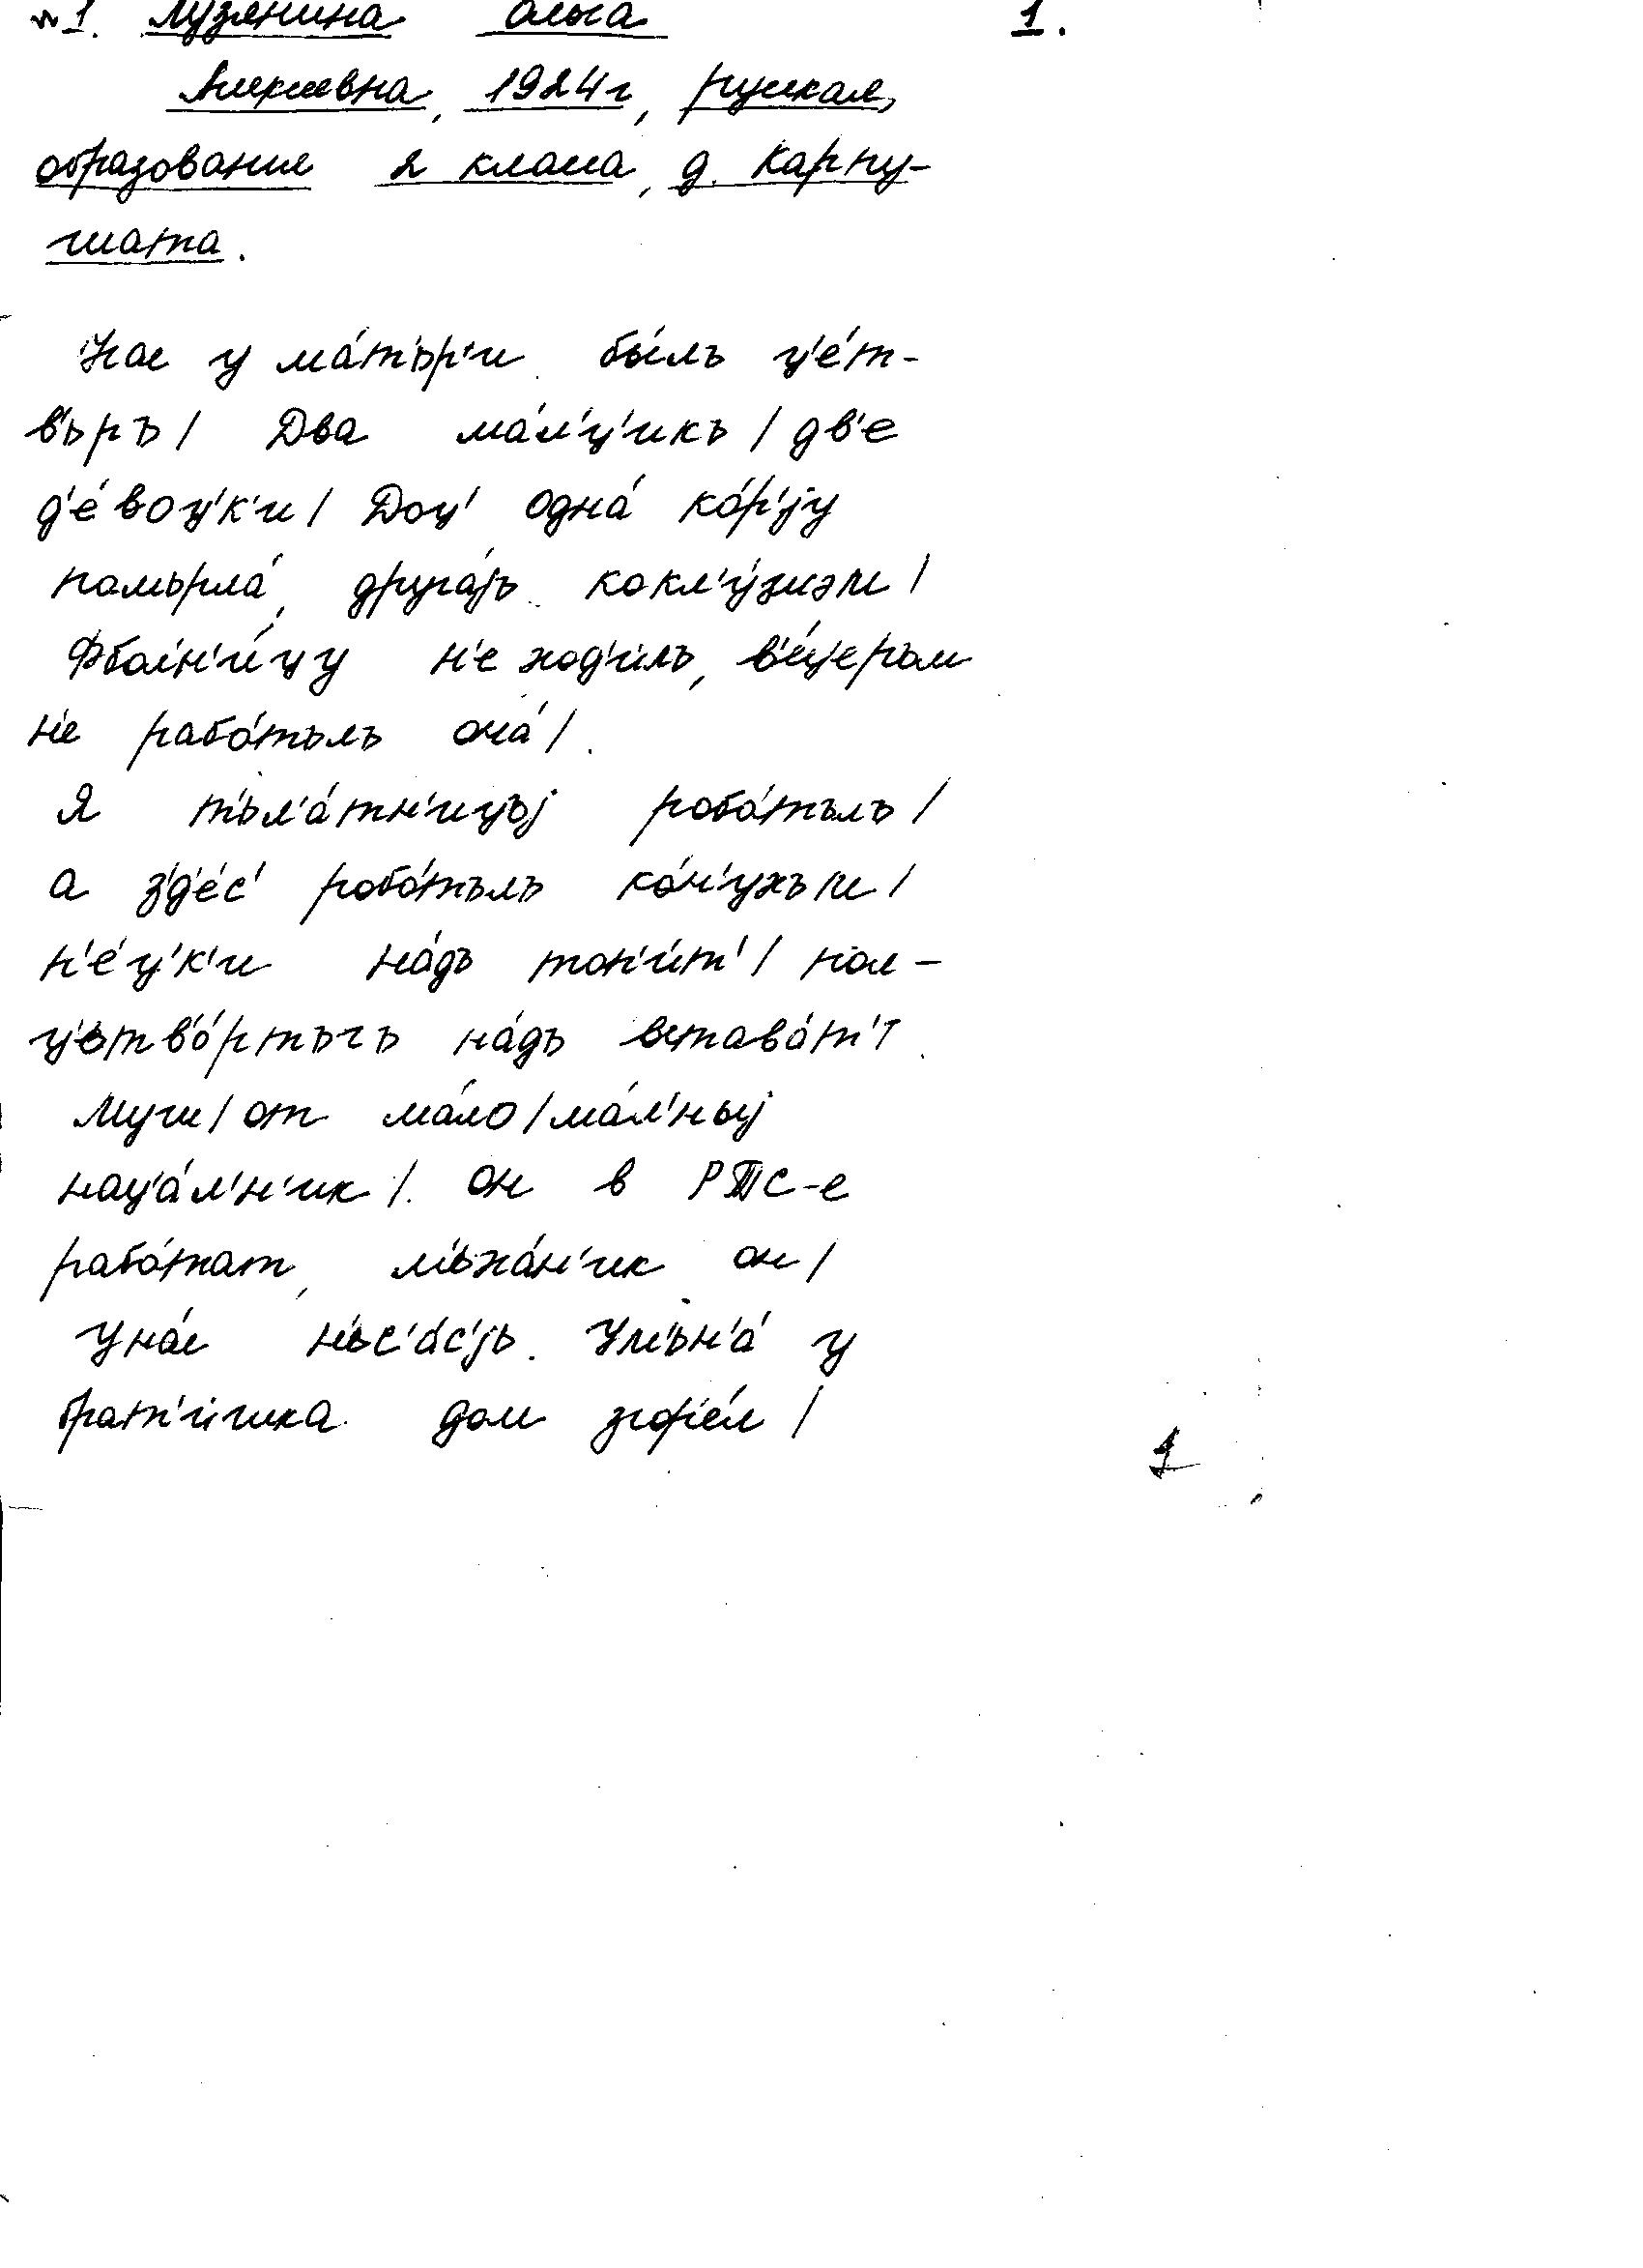 №1. Лузянина Ольга 1.
Алексеевна, 1924г, русская,
образование 2 класса, д. Карпу-
шата.
Нас у ма́т'ър'и бы́лъ ц'е́т-
в'ьръ / Два ма́л'ц'икъ / дв'е
д'е́воц'к'и / Доц' одна́ ко́р'jу
помьрла́, друга́jъ кокл'у́шэм /
Фбол'н'и́цу н'е ход'и́лъ, в'е́ц'еръм
н'е рабо́тълъ она́ /.
Я т'ьл'а́тн'ицъj робо́тълъ /
а з'д'е́с' робо́тълъ ко́н'ухъм /
п'е́ц'к'и на́дъ топ'и́т' / пол-
ц'ьтв'о́ртъгъ на́дъ встава́т'
Муш / от ма́ло / ма́л'ныj
нац'а́л'н'ик /. он в РТС-е
рабо́тат, м'ьха́н'ик он /
Уна́с н'ьс'а́с'jь. Ум'ьн'а́ у
брат'и́шка дом згор'е́л /
1